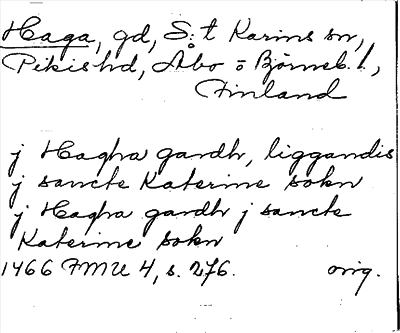 Haga, gd, S:t Karins sn,
Pikis hd, Åbo o Björneb. l.,
Finland
j Hagha gardh, liggandis
j sancte Katerine sokn
j Hagha gardh j sancte
Katerine sokn
1466 FMU 4, s. 276. orig.